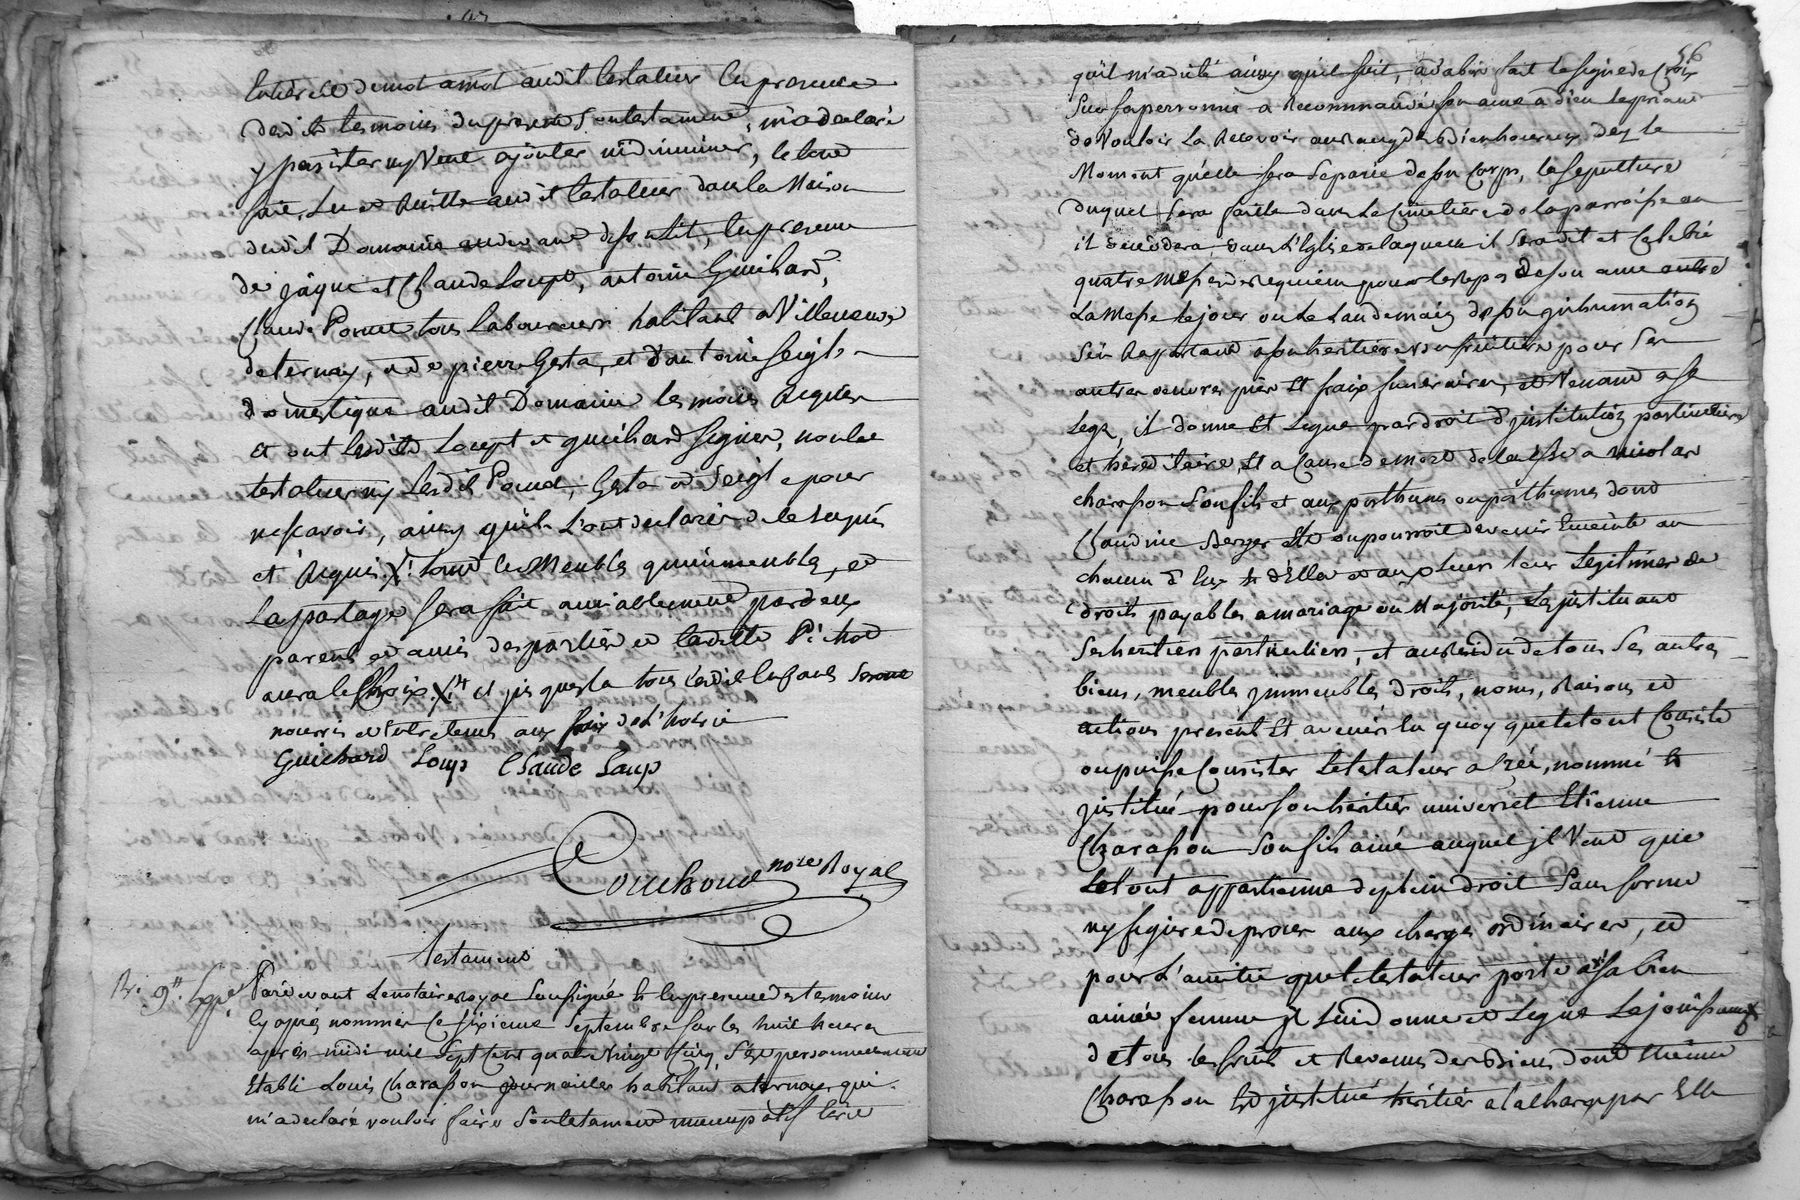 de mot amot audit testateur En presence
desdits temoins du present Son testament, m'a declaré
y persister ny Veut ajouter ni diminuer, le tout
fait, Lu et Relu audit testateur dans la Maison
dudit Domaine au devant de son Lit, En presence
de jâque et Claude Loup, antoine Guichard,
Claude Ponce tous Laboureurs habitant a Villeneuve
de ternay, et de pierre Gesta, et d'antoine Seigle
domestique audit Domaine temoins Requis
Et ont lesdits Loup et guichard Signer, non le
testateur ny Lesdit Ponce, Gesta et Seigle pour
ne scavoir, ainsy qu'ils L'ont declarés de ce Enquis
et Requis. X. tout les Meubles qu'immeubles, et
Le partage Sera fait amiablement par deux
parents et amis des parties et laditte Pichot
aura le Choix X. et jusques la tous lesdit Enfans Seront
nourris et Entretenus aux frais de L'hoirie
Guichard Loup Claude Loup
Couchoud nore Royal
Testament
Pardevant Le notaire royal Soussigné Et En presence des temoins
Cy après nommés Ce Sixieme Septembre Sur les huit heures
après midi mil Sept Cent quatre Vingt Cinq S'est personnellement
Etabli Louis Charasson journailler habitant a ternay qui
m'a declaré vouloir faire Son testament nuncupatif Ecrit
56
qu'il m'a dicté ainsy qu'il suit, d'abord fait le Signe de Croix
Sur Sa personne a Recommandé Son ame a Dieu Le priant
de Vouloir La Recevoir au Rang des Bienheureux Dez le
Moment qu'elle Sera Separée de Son Corps, la Sepulture
Duquel Sera faitte dans Le Cimetiere de la parroisse ou
il decedera, dans L'Eglise de laquelle il Sera dit et Celebré
quatre Messes de requiem pour le repos De Son ame outre
La Messe le jour ou Le Landemain de Son jnhumation
S'en Raportant a Son heritiere usufruitiere pour Ses
autres oeuvres pies Et fraix funeraires, et Venant a Ses
Legs, il donne Et Legue par droit d'jnstitution particuliere
et hereditaire, Et a Cause de mort a nicolas
charasson Son fils et aux posthumes ou posthumes dont
Claudine Berger Est ou pourroit devenir Enceinte au
chacun d'Eux Et d'Elles et aux leurs Leur Legitime de
droits payables a mariage ou Majorité, Les jnstituant
Ses heritiers particuliers, et au Residu de tous Ses autres
biens, meubles jmmeubles droits, noms, Raisons et
actions present Et avenir En quoy que le tout Consiste
ou puisse Consister Le testateur a Créé, nommé Et
jnstitué pour Son heritier universel Etienne
Charasson Son fils ainé auquel jl Veut que
Le tout appartienne de plein droit Sans forme
ny figure de procès aux charges ordinaires, et
pour L'amitié que le testateur porte a Sa bien
aimée femme jl Lui donne et Legue La jouissance
de tous les fruits et Revenus des Biens dont Etienne
Charasson Est jnstitué héritier a la charge par Elle